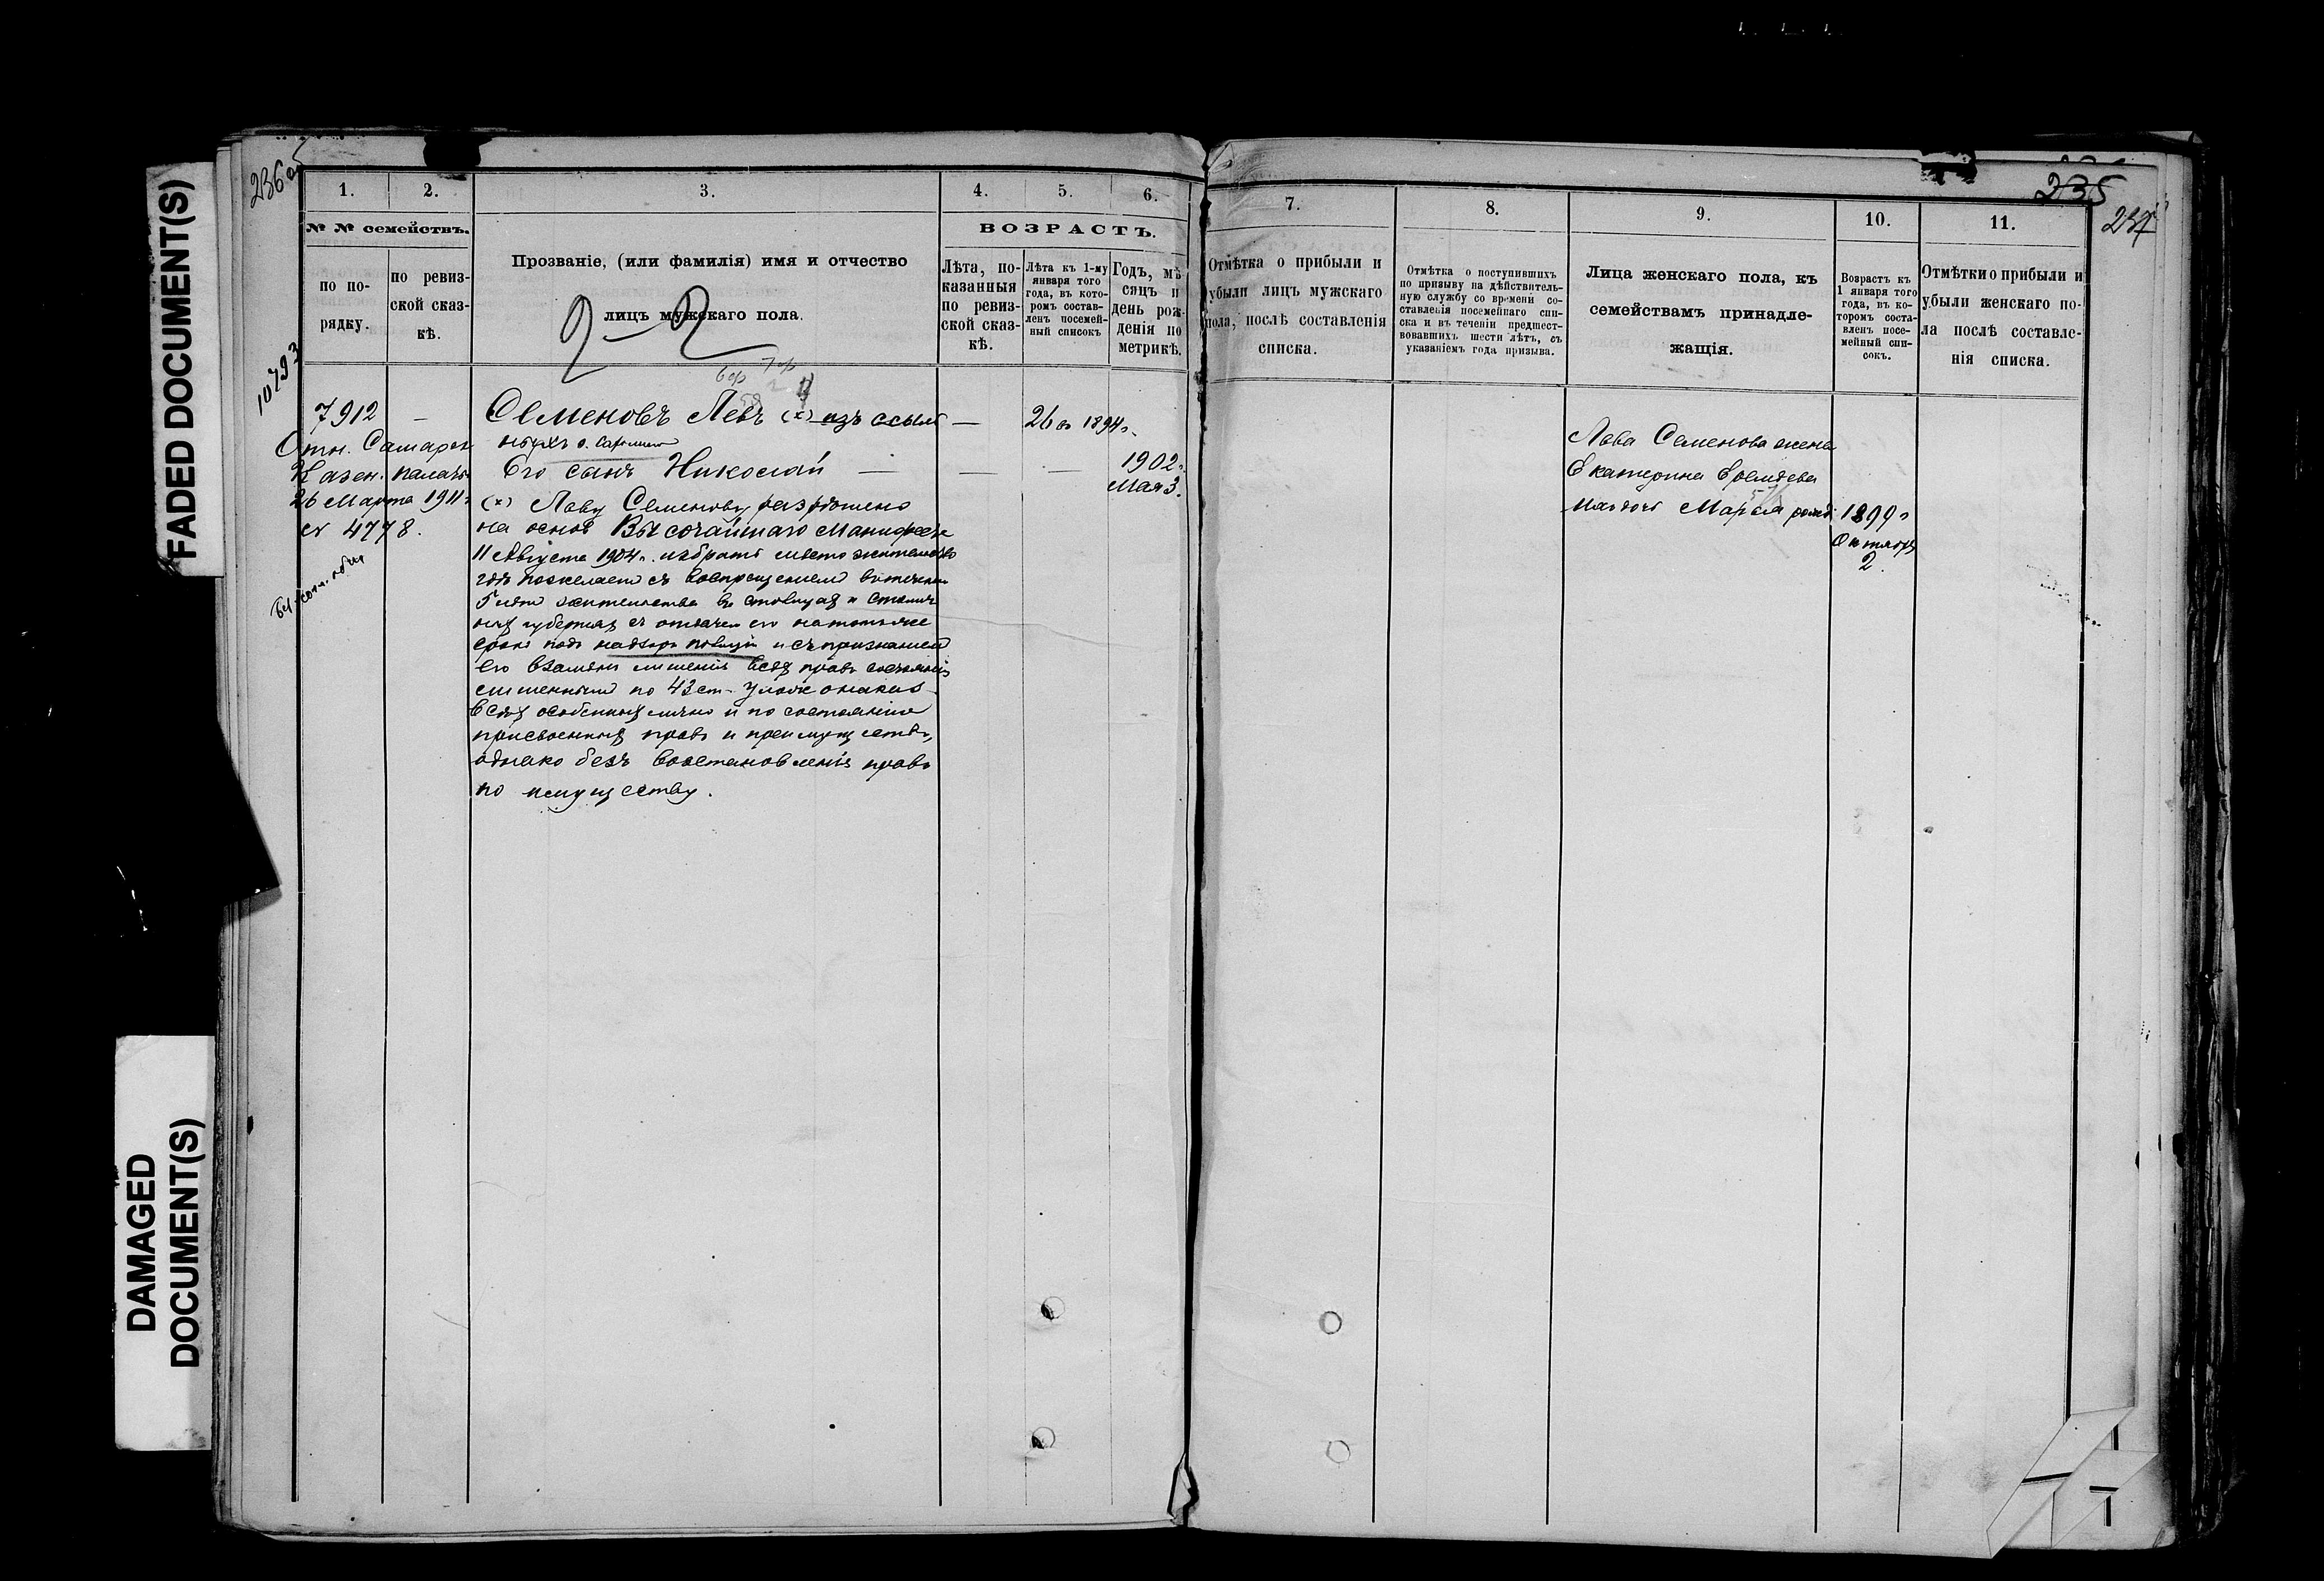 FADED DOCUMENT(S)
DAMAGED
DOCUMENT(S)
236 об
1.
2.
3.
4.
5.
6.
№ № семействъ.
ВОЗРАСТЪ.
по по-
рядку.
по ревиз-
ской сказ-
кѣ.
Прозваніе, (или фамилія) имя и отчество
лицъ мужскаго пола.
2 – 2
Лѣта, по-
казанныя
по ревиз-
ской сказ-
кѣ.
Лѣта къ 1-му
января того
года, въ кото-
ромъ состав-
ленъ посемей-
ный списокъ
Годъ, мѣ
сяцъ и
день рож-
денія по
метрикѣ.
10793
7912 —
Отн. Самарск
Казен. палаты
26 Марта 1911 г
№ 4778.
Семеновъ Левъ (х) изъ ссыль — 26 въ 1894 г.
ныхъ о. Сахалина
Его сынъ Николай — — — 1902 г.
Мая 3.
(х) Льву Семенову разрѣшено
на основ Высочайшаго Манифеста
11 Августа 1904 г. избрать мѣсто жительства
гдѣ пожелаетъ съ воспрещеніемъ въ теченіи
5 лѣтъ жительства въ столицах и столич
ных губерніях съ отдачею его на тотъ же
срокъ подъ надзоръ полиціи и съ признаніемъ
его взамѣнъ лишенія всѣх правъ состоянія
лишеннымъ по 43 ст. Улож о наказ
всѣх особенных лично и по состоянію
присвоенных правъ и преимуществъ,
однако безъ возстановленія правъ
по имуществу.
7.
8.
9.
10.
11.
235
237
Отмѣтка о прибыли и
убыли лицъ мужскаго
пола, послѣ составленія
списка.
Отмѣтка о поступившихъ
по призыву на дѣйствитель-
ную службу со времени со-
ставленія посемейнаго спи-
ска и въ теченіи предшест-
вовавшихъ шести лѣтъ, съ
указаніемъ года призыва.
Лица женскаго пола, къ
семействамъ принадле-
жащія.
Возрастъ къ
1 января того
года, въ ко-
торомъ соста-
вленъ посе-
мейный спи-
сокъ.
Отмѣтки о прибыли и
убыли женскаго по-
ла послѣ составле-
нія списка.
Льва Семенова жена
Екатерина
дочь Марья рожд 1899 г
Октября
2.